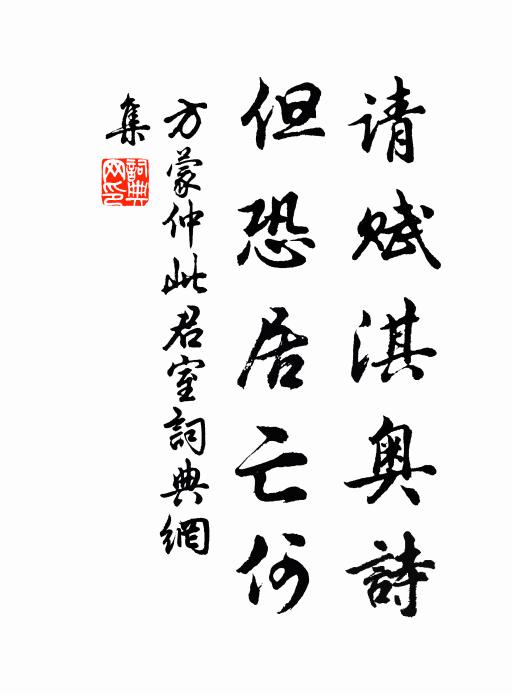 请赋淇奥詩
但恐居亡何
方蒙仲此君室詞典網
集
詞典
网印